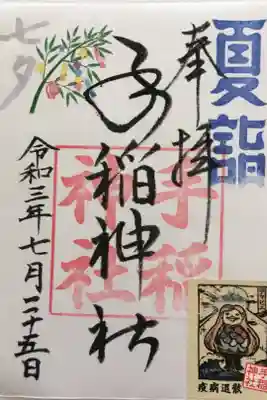 夏詣
奉拝
七夕
手稲神社
手稲神社
令和三年七月二十五日
疫病退散
手稲神社